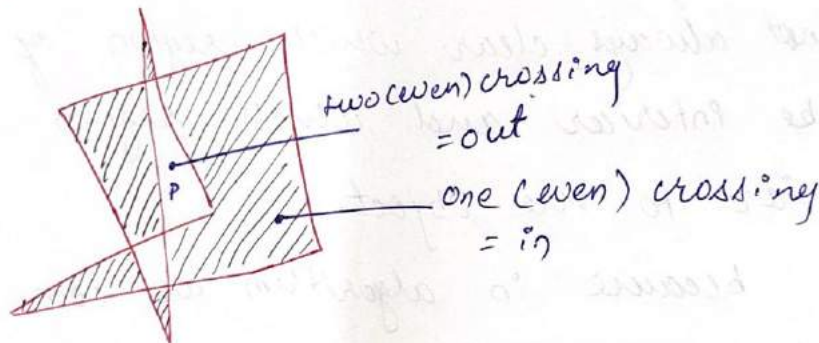 two (even) crossing
= out
P
one (even) crossing
= in